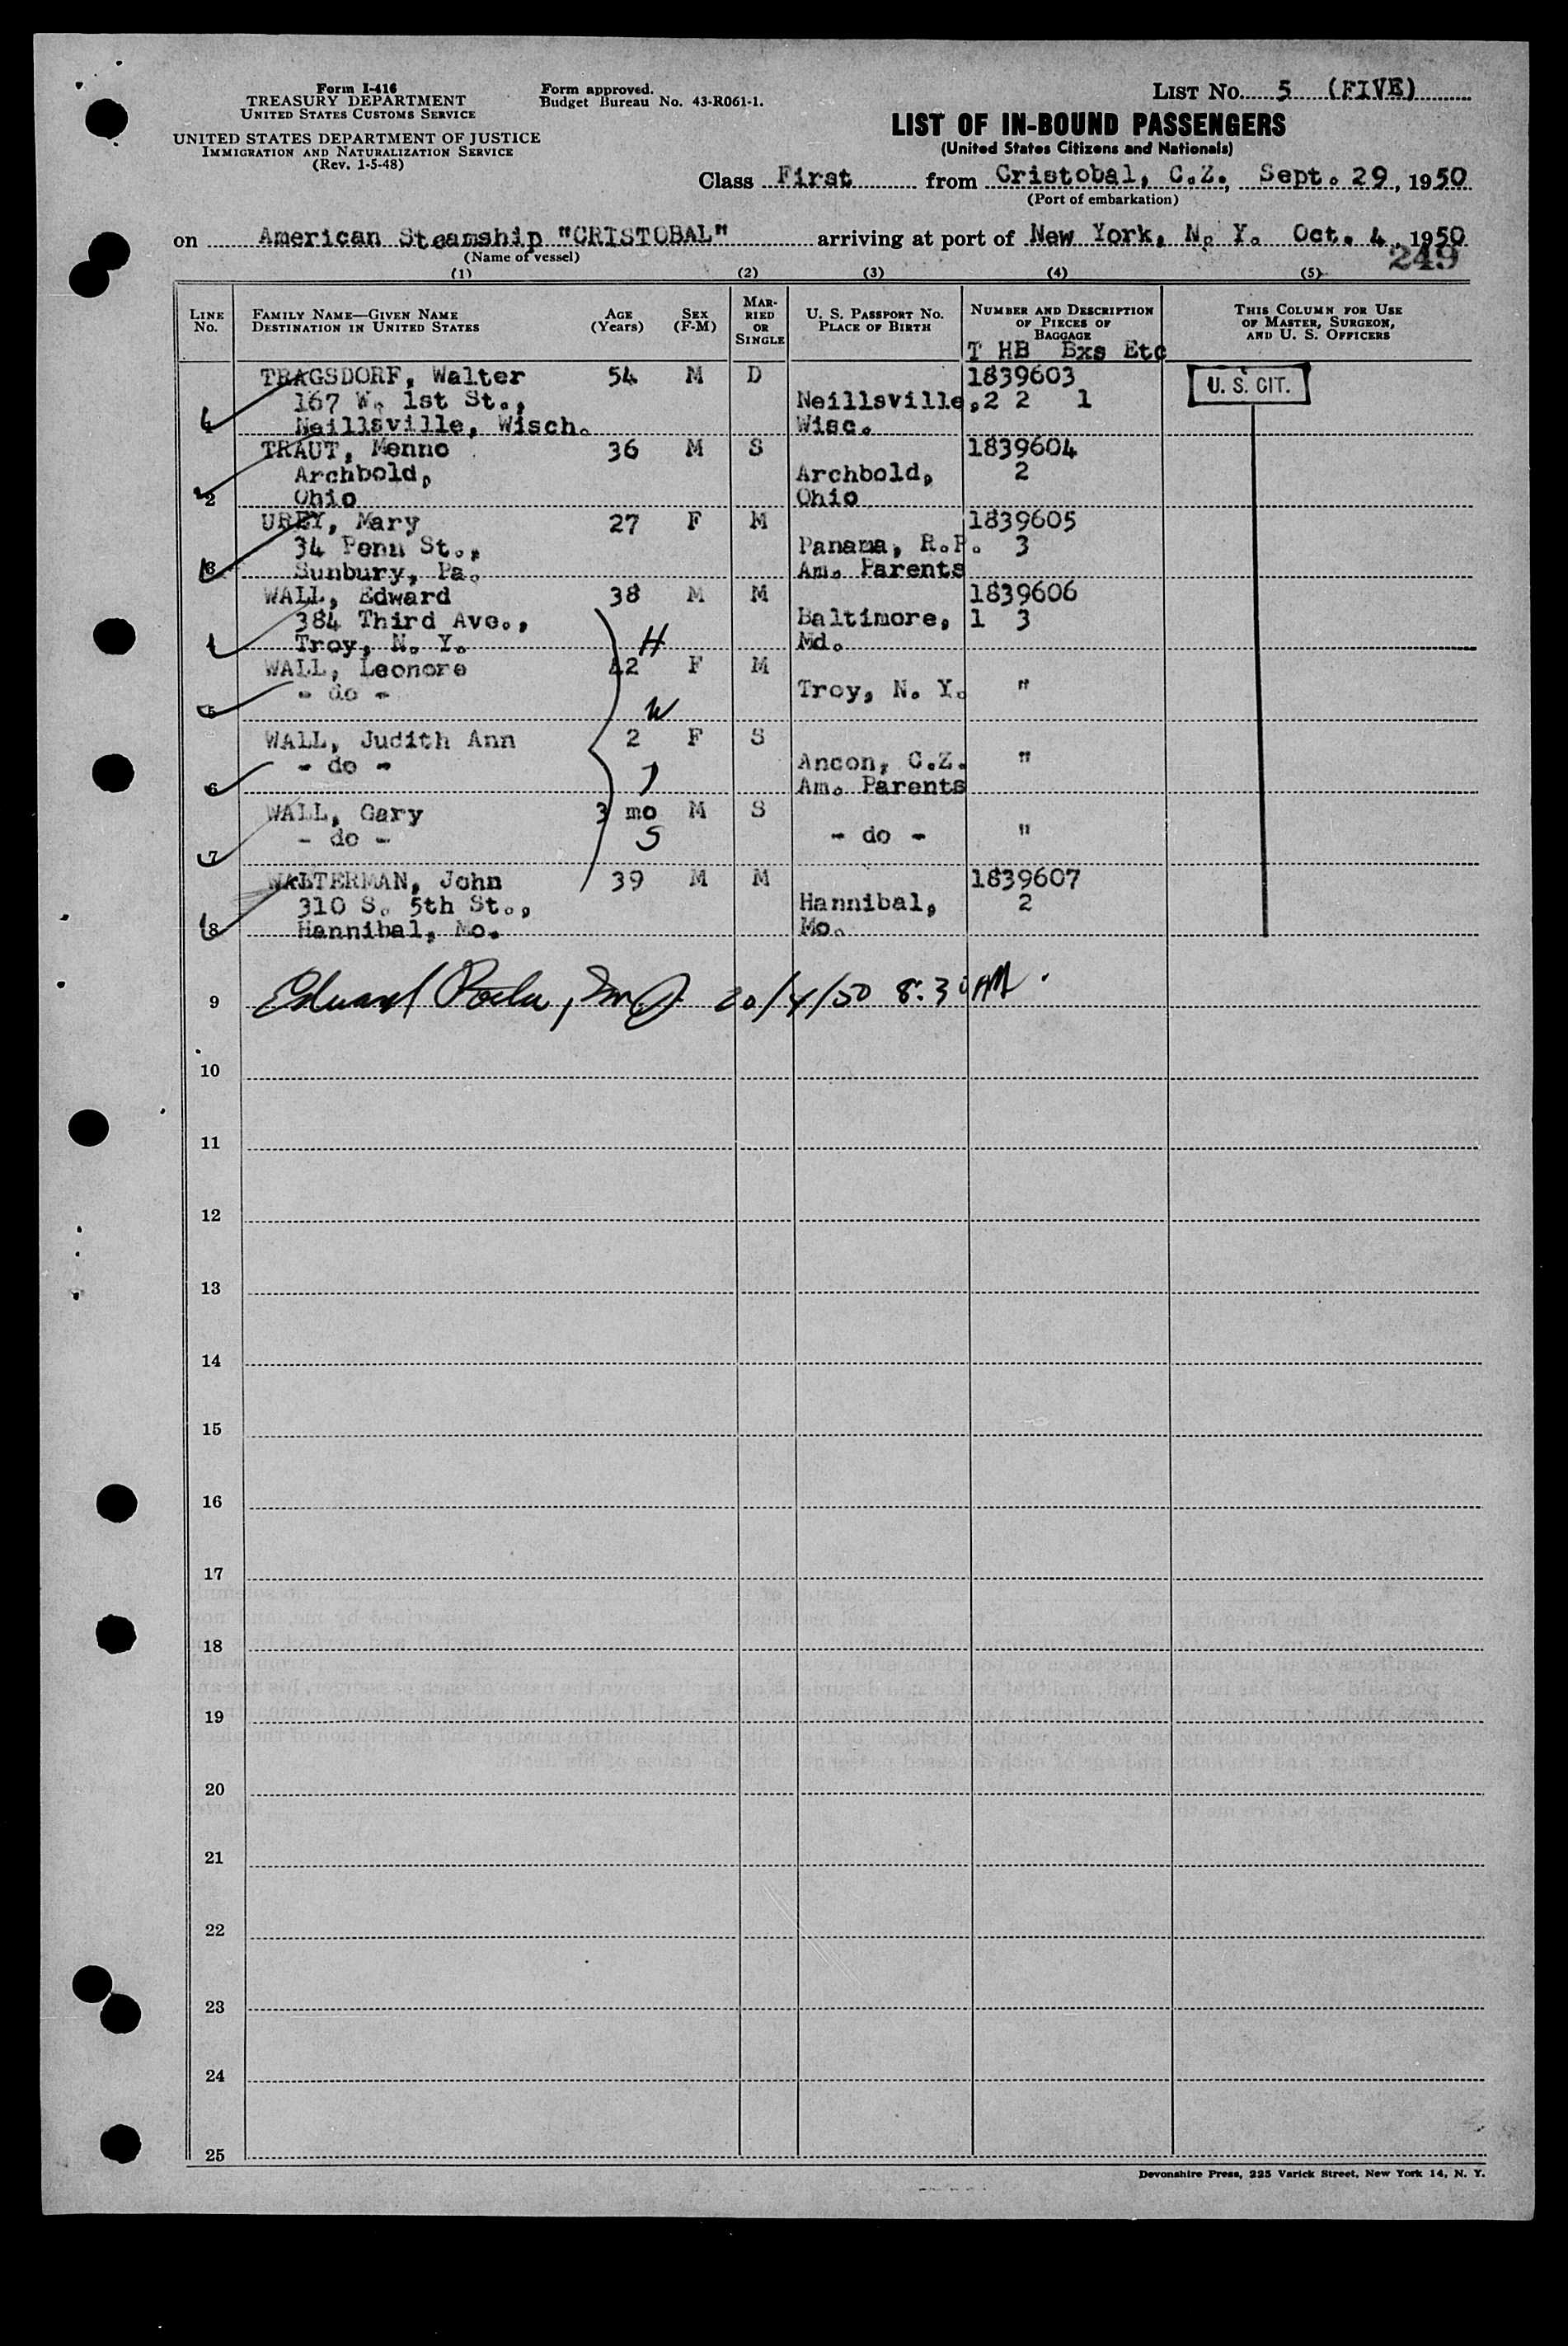 Form I-416
TREASURY DEPARTMENT
UNITED STATES CUSTOMS SERVICE
UNITED STATES DEPARTMENT OF JUSTICE
IMMIGRATION AND NATURALIZATION SERVICE
(Rev. 1-5-48)
Form approved.
Budget Bureau No. 43-R061-1.
LIST No. 5 (FIVE)
LIST OF IN-BOUND PASSENGERS
(United States Citizens and Nationals)
Class First from Cristobal, C.Z., Sept. 29, 1950
(Port of embarkation)
on American Steamship "CRISTOBAL" arriving at port of New York, N. Y. Oct. 4, 1950
(Name of vessel)
249
(1) (2) (3) (4) (5)
LINE No. FAMILY NAME—GIVEN NAME DESTINATION IN UNITED STATES AGE (Years) SEX (F-M) MARRIED OR SINGLE U. S. PASSPORT NO. PLACE OF BIRTH NUMBER AND DESCRIPTION OF PIECES OF BAGGAGE THIS COLUMN FOR USE OF MASTER, SURGEON, AND U. S. OFFICERS
T HB Bxs Etc
TRAGSDORF, Walter 54 M D 1839603 U. S. CIT.
167 W. 1st St., Neillsville, 2 2 1
Neillsville, Wisch. Wisc.
TRAUT, Menno 36 M S 1839604
Archbold, Archbold, 2
2 Ohio Ohio
UREY, Mary 27 F M 1839605
34 Penn St., Panama, R.P. 3
3 Sunbury, Pa. Am. Parents
WALL, Edward 38 M M 1839606
384 Third Ave., Baltimore, 1 3
4 Troy, N. Y. H Md.
WALL, Leonore 42 F M
- do - Troy, N. Y. "
5 W
WALL, Judith Ann 2 F S
- do - Ancon, C.Z. "
6 Am. Parents
WALL, Gary 3 mo M S
- do - S - do - "
7
WALTERMAN, John 39 M M 1839607
310 S. 5th St., Hannibal, 2
8 Hannibal, Mo. Mo.
9 Edward 8:30 AM
10
11
12
13
14
15
16
17
18
19
20
21
22
23
24
25
Devonshire Press, 225 Varick Street, New York 14, N. Y.